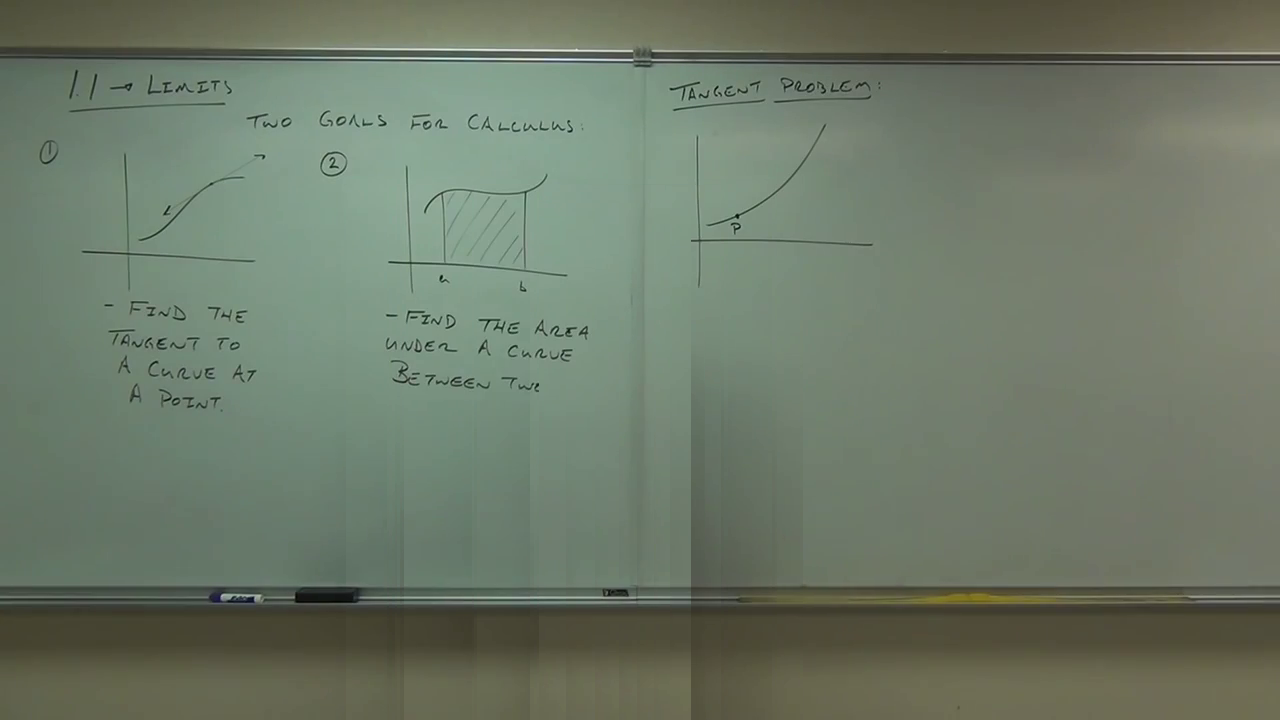 1.1 → LIMITS
TWO GOALS FOR CALCULUS:
①
②
a
b
- FIND THE
TANGENT TO
A CURVE AT
A POINT.
- FIND THE AREA
UNDER A CURVE
BETWEEN
TANGENT PROBLEM:
P